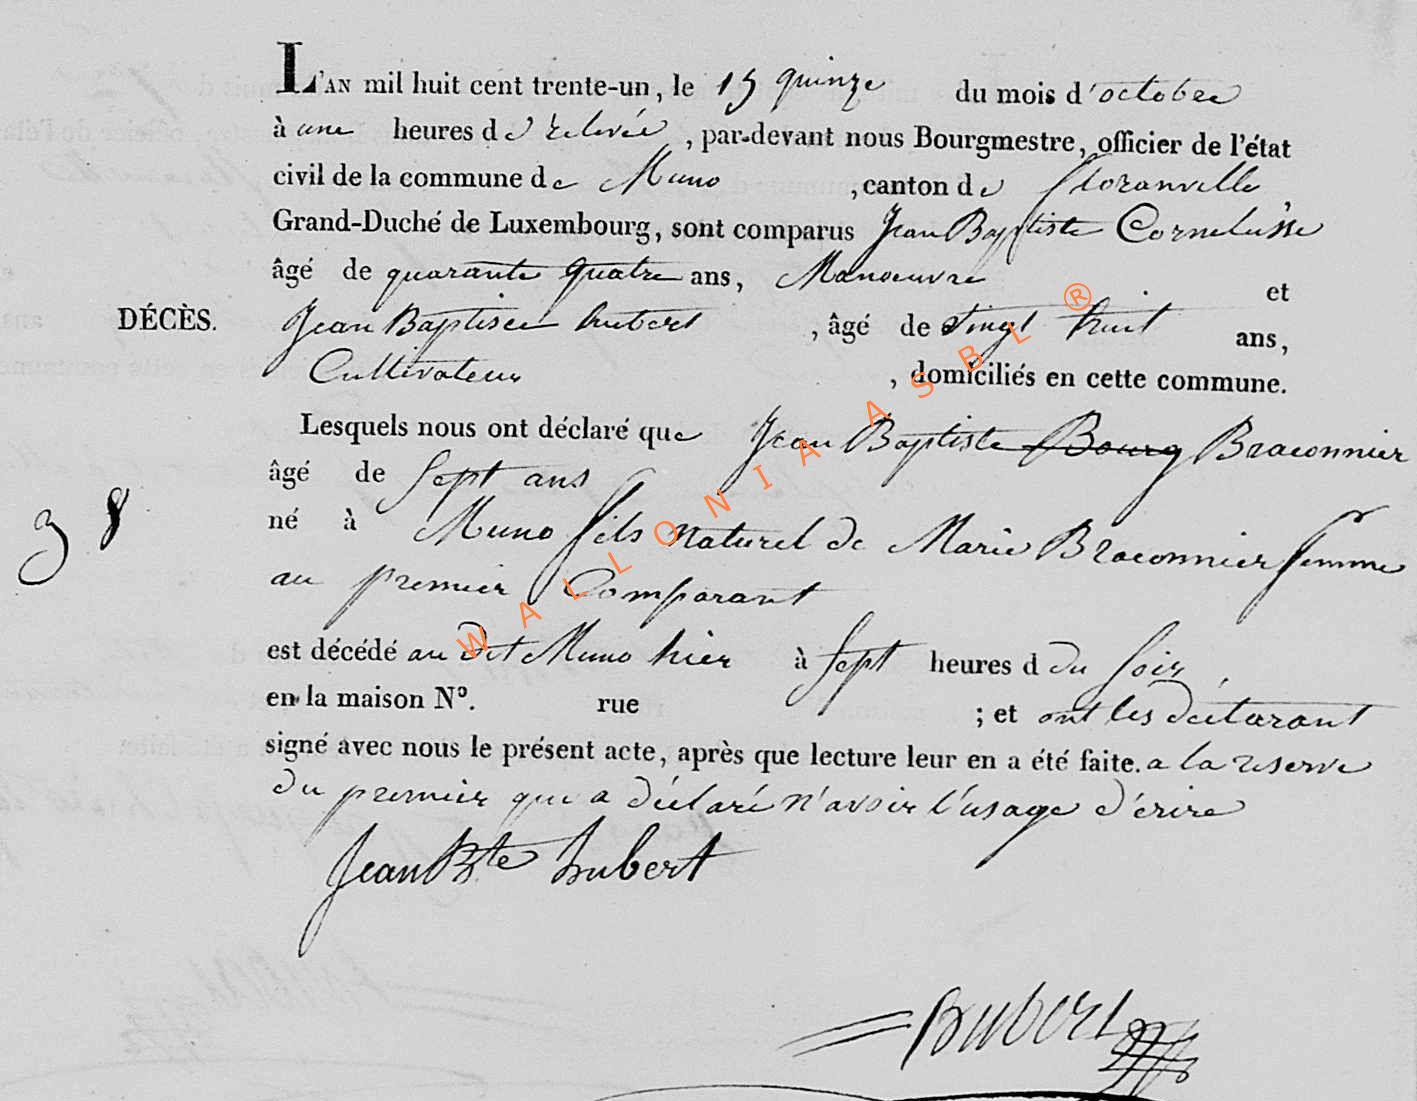 L'AN mil huit cent trente-un, le 15 quinze du mois d'octobre
à une heures de relevée, par-devant nous Bourgmestre, officier de l'état
civil de la commune de Muno, canton de Floranville
Grand-Duché de Luxembourg, sont comparus Jean Baptiste Cornelusse
âgé de quarante quatre ans, Manoeuvre et
DÉCÈS.
Jean Baptiste hubert, âgé de vingt huit ans,
Cultivateur, domiciliés en cette commune.
Lesquels nous ont déclaré que Jean Baptiste Bourg Braconnier
âgé de Sept ans
38
né à Muno fils naturel de Marie Braconnier femme
au premier Comparant
est décédé au dit Muno hier à Sept heures d du Soir,
en la maison N°. rue ; et ont les déclarant
signé avec nous le présent acte, après que lecture leur en a été faite. a la reserve
du premier qui a déclaré n'avoir l'usage d'écrire
Jean Bte hubert
Hubert
WALLONIA ASBL ®